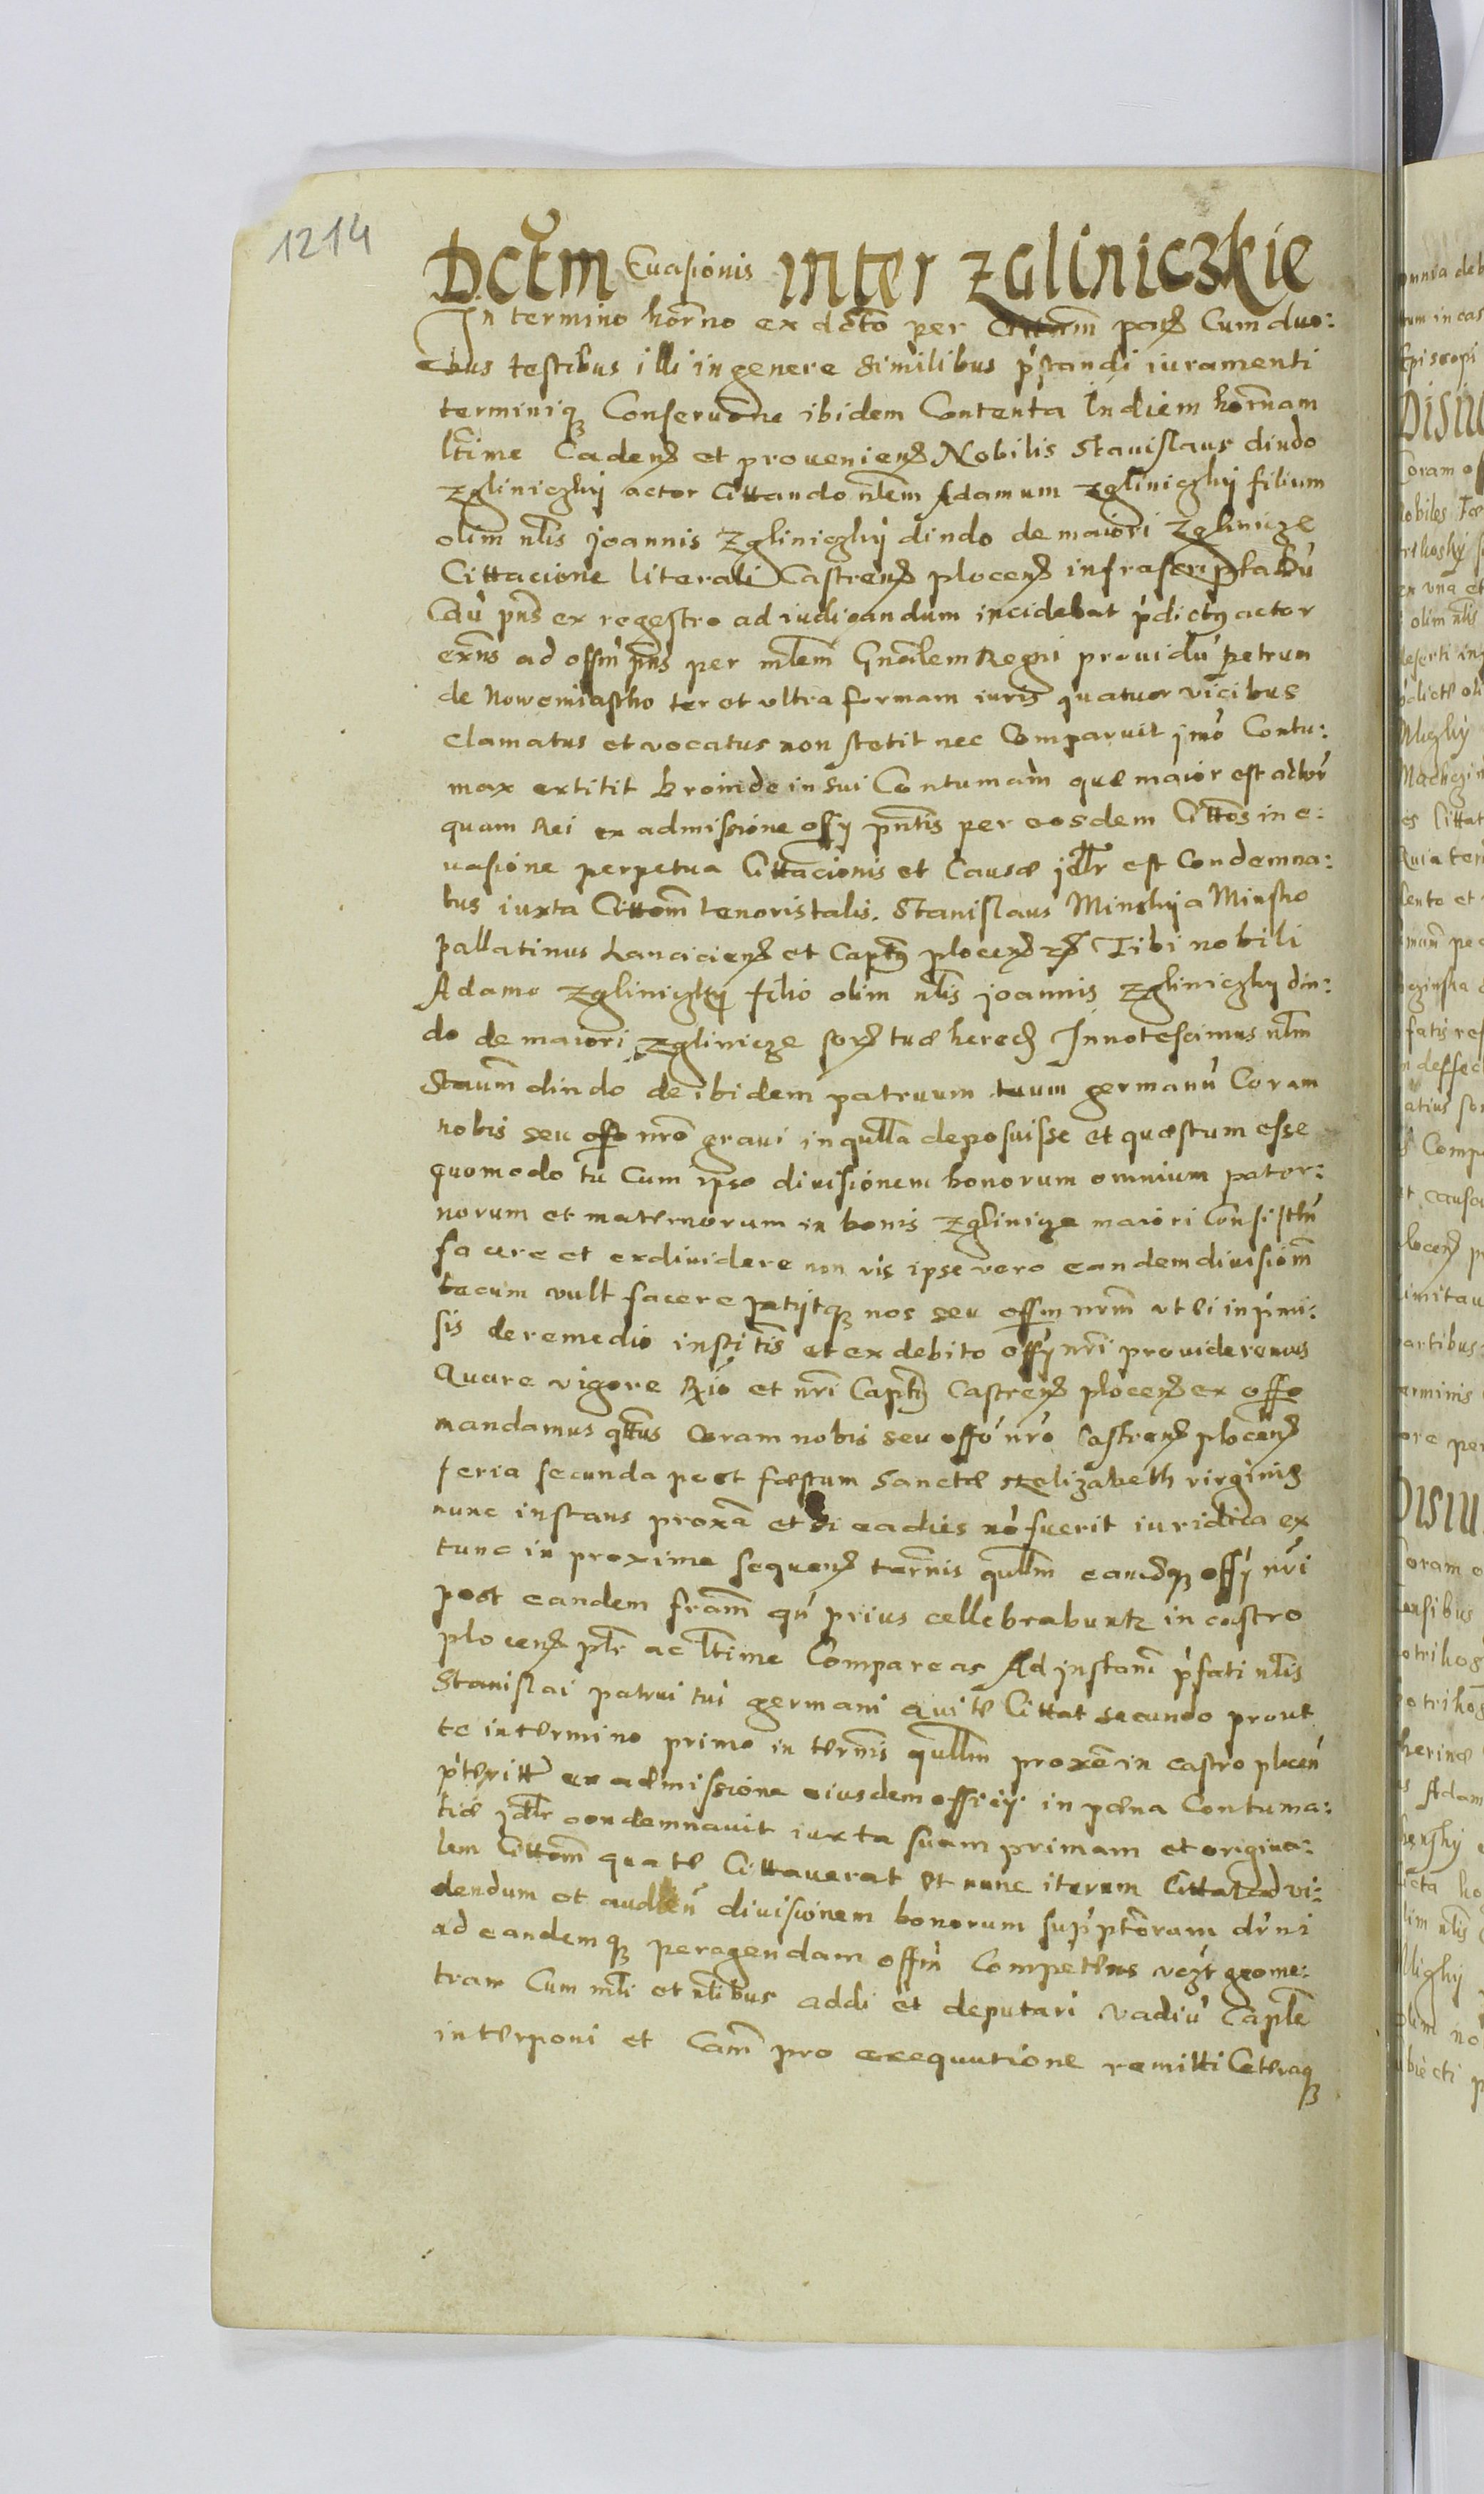 1214
Dctm Euasionis inter zgliniczkie
In termino horno ex dcto per parẜ Cum duo:
bus testibus illi in genere similibus pstandi iuramenti
terminiqȝ Conseruone ibidem Contenta In diem hornam
ltime Cadenẜ et prouenienẜ Nobilis Stanislaus dindo
zgliniczky actor Cittando nlem Adamum zgliniczky filium
olim nlis Joannis zgliniczky dindo de maiori zglinicze
Cittacione literali Castrenẜ plocenẜ infrascripta dū
Cāu pns ex regestro ad iudicandum incidebat pdictꝰ actor
exns ad offm pns per mlem Gnalem Regni prouidū petrum
de Nowemiastho ter et vltra formam iuris quatuor vicibus
clamatus et vocatus non stetit nec Comparuit imo Contu:
max extitit Proinde in sui Contumam que maior est actoris
quam Rei ex admissione offy pntis per eosdem Cittos in e:
uasione perpetua Cittacionis et Causæ jdlr est Condemna:
tus iuxta Cittom tenoris talis. Stanislaus Minsky a Minsko
pallatinus Lancicienẜ et Captꝰ plocenẜ Tibi nobili
Adamo zgliniczky filio olim nlis joannis zgliniczky din:
do de maiori zglinicze sorẜ tuæ heredẜ Innotescimus nlm
Staum dindo de ibidem patruum tuum germanū Coram
nobis seu offo nro graui in qulla deposuisse et quæstum esse
quomodo tu Cum ipso diuisionem bonorum omnium pater:
norum et maternorum in bonis zglinicze maiori Consisten
facere et exdiuidere non vis ipse vero eandem diuisionem
tecum vult facere petytqȝ nos seu offm nrm vt ei in pmi:
sis de remedio institis et ex debito offy nri prouideremus
Quare vigore Rio et nri Captꝰ Castrenẜ plocenẜ ex offo
mandamus qtus Coram nobis seu offo nro Castrenẜ plocenẜ
feria secunda post fæstum Sanctæ Elizabeth virginis
nunc instans proxa et si ea dies nō fuerit iuridica ex
tunc in proxime sequenẜ ternis qullm eamdqȝ offy nri
post eandem fram qū prius cellebrabuntr in castro
plocenẜ plr ac ltime Compareas Ad instam pfati nlis
Stanislai patrui tui germani qui te Cittat secundo prout
te in termino primo in ternis qullm proxe in castro plocen
pteritt ex admissione eiusdem officy in pæna Contuma:
tiæ jdlr condemnauit iuxta suam primam et origina:
lem Cittom qua te Cittauerat Et nunc iterum Cittat ad vi:
dendum et audien diuisionem bonorum supptorum
ad eandemqȝ peragendam offm Competens geome:
tram Cum mli et nlibus addi et deputari vadiū Caple
interponi et Cam pro exequutione remitti Ceteraqȝ